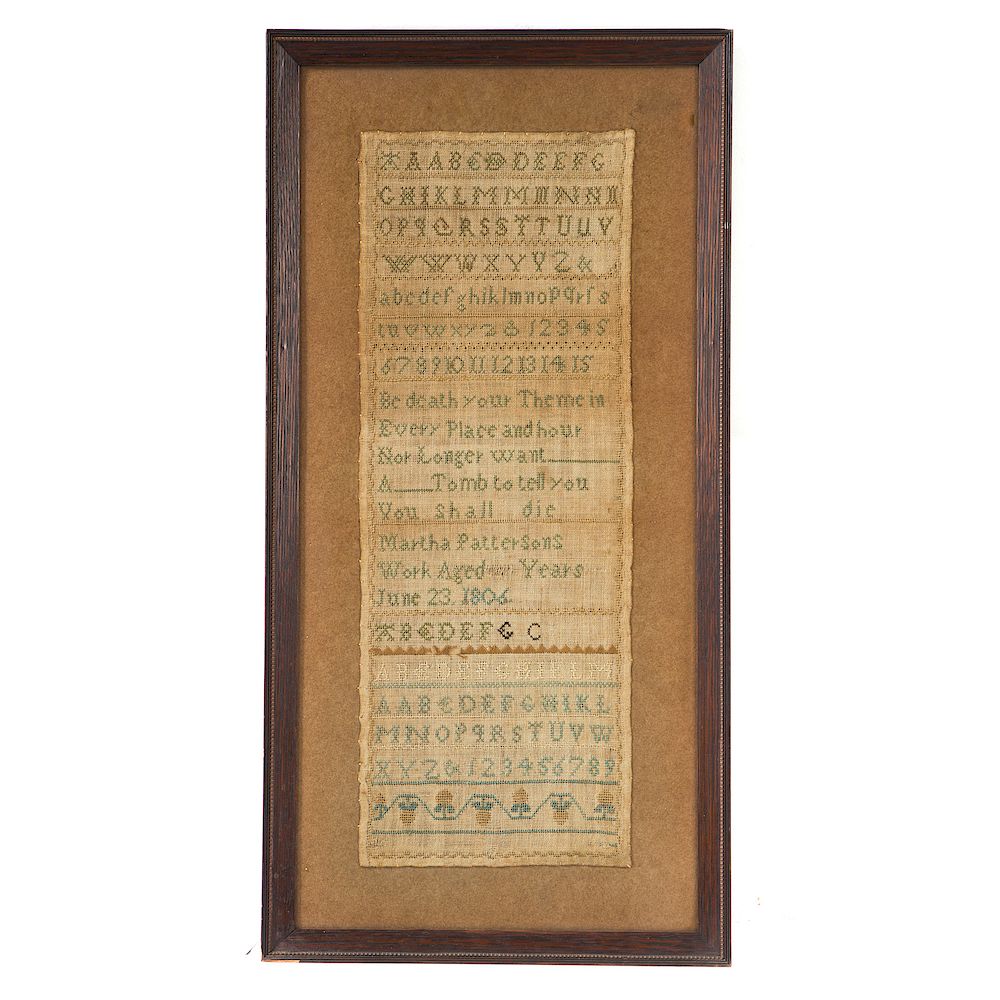 A A A B C D D E E F G
G H I K L M M M N N N
O P q Q R S S T T U U V
W W W X Y Y Z &
a b c d e f g h i k l m n o p q r ſ s
t u v w x y z & 1 2 3 4 5
6 7 8 9 10 11 12 13 14 15
Be death your Theme in
Every Place and hour
Nor Longer want
A Tomb to tell you
You shall die
Martha Pattersons
Work Aged Years
June 23 1806
A B C D E F G C
A B C D E F G H I K L M
A A B C D E F G H I K L
M N O P q R S T U V W
X Y Z & 1 2 3 4 5 6 7 8 9